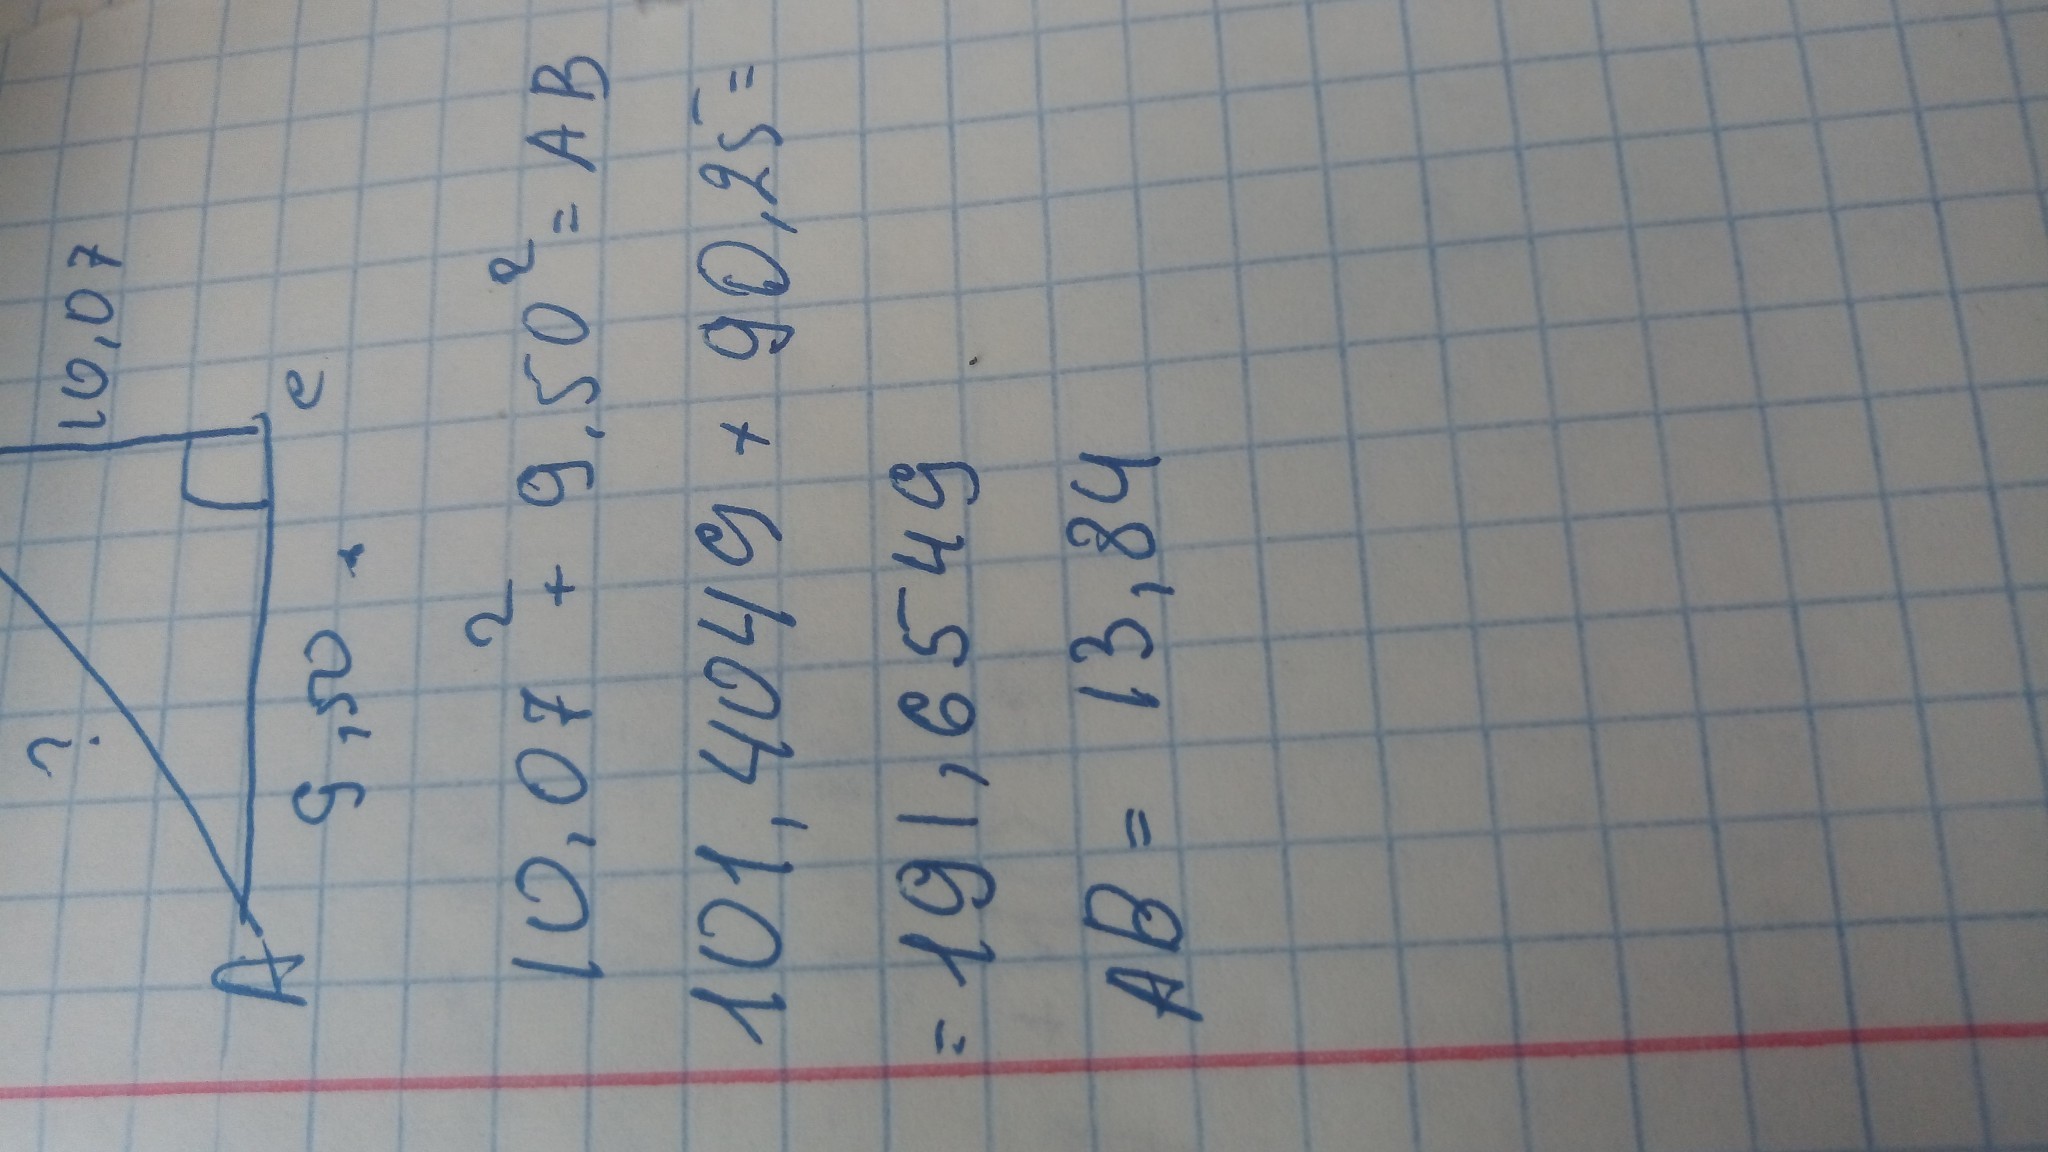 10,07
?
c
A
9,50
10,07² + 9,50² = AB
101,4049 + 90,25=
= 191,6549
AB = 13,84